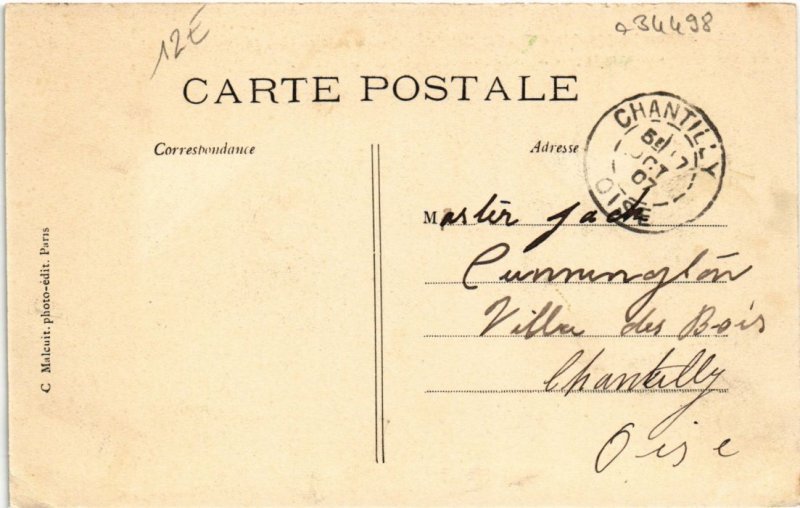 12€
a34498
CARTE POSTALE
Correspondance
Adresse
CHANTILLY
OCT
07
OISE
Master Jack
Cunnington
Villa des Bois
Chantilly
Oise
C Malcuit, photo-édit. Paris